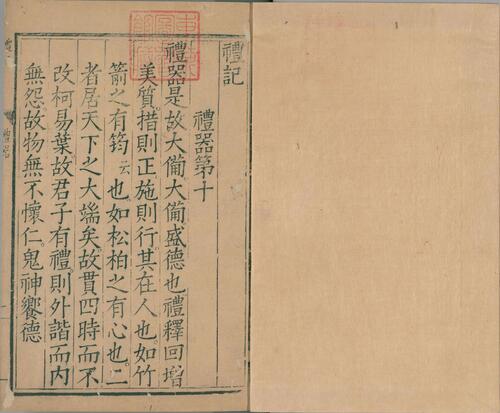 禮記
禮器第十
禮器是故大備大備盛德也禮釋回增
美質措則正施則行其在人也如竹
箭之有筠云也如松柏之有心也二
者居天下之大端矣故貫四時而不
改柯易葉故君子有禮則外諧而內
無怨故物無不懷仁鬼神饗德